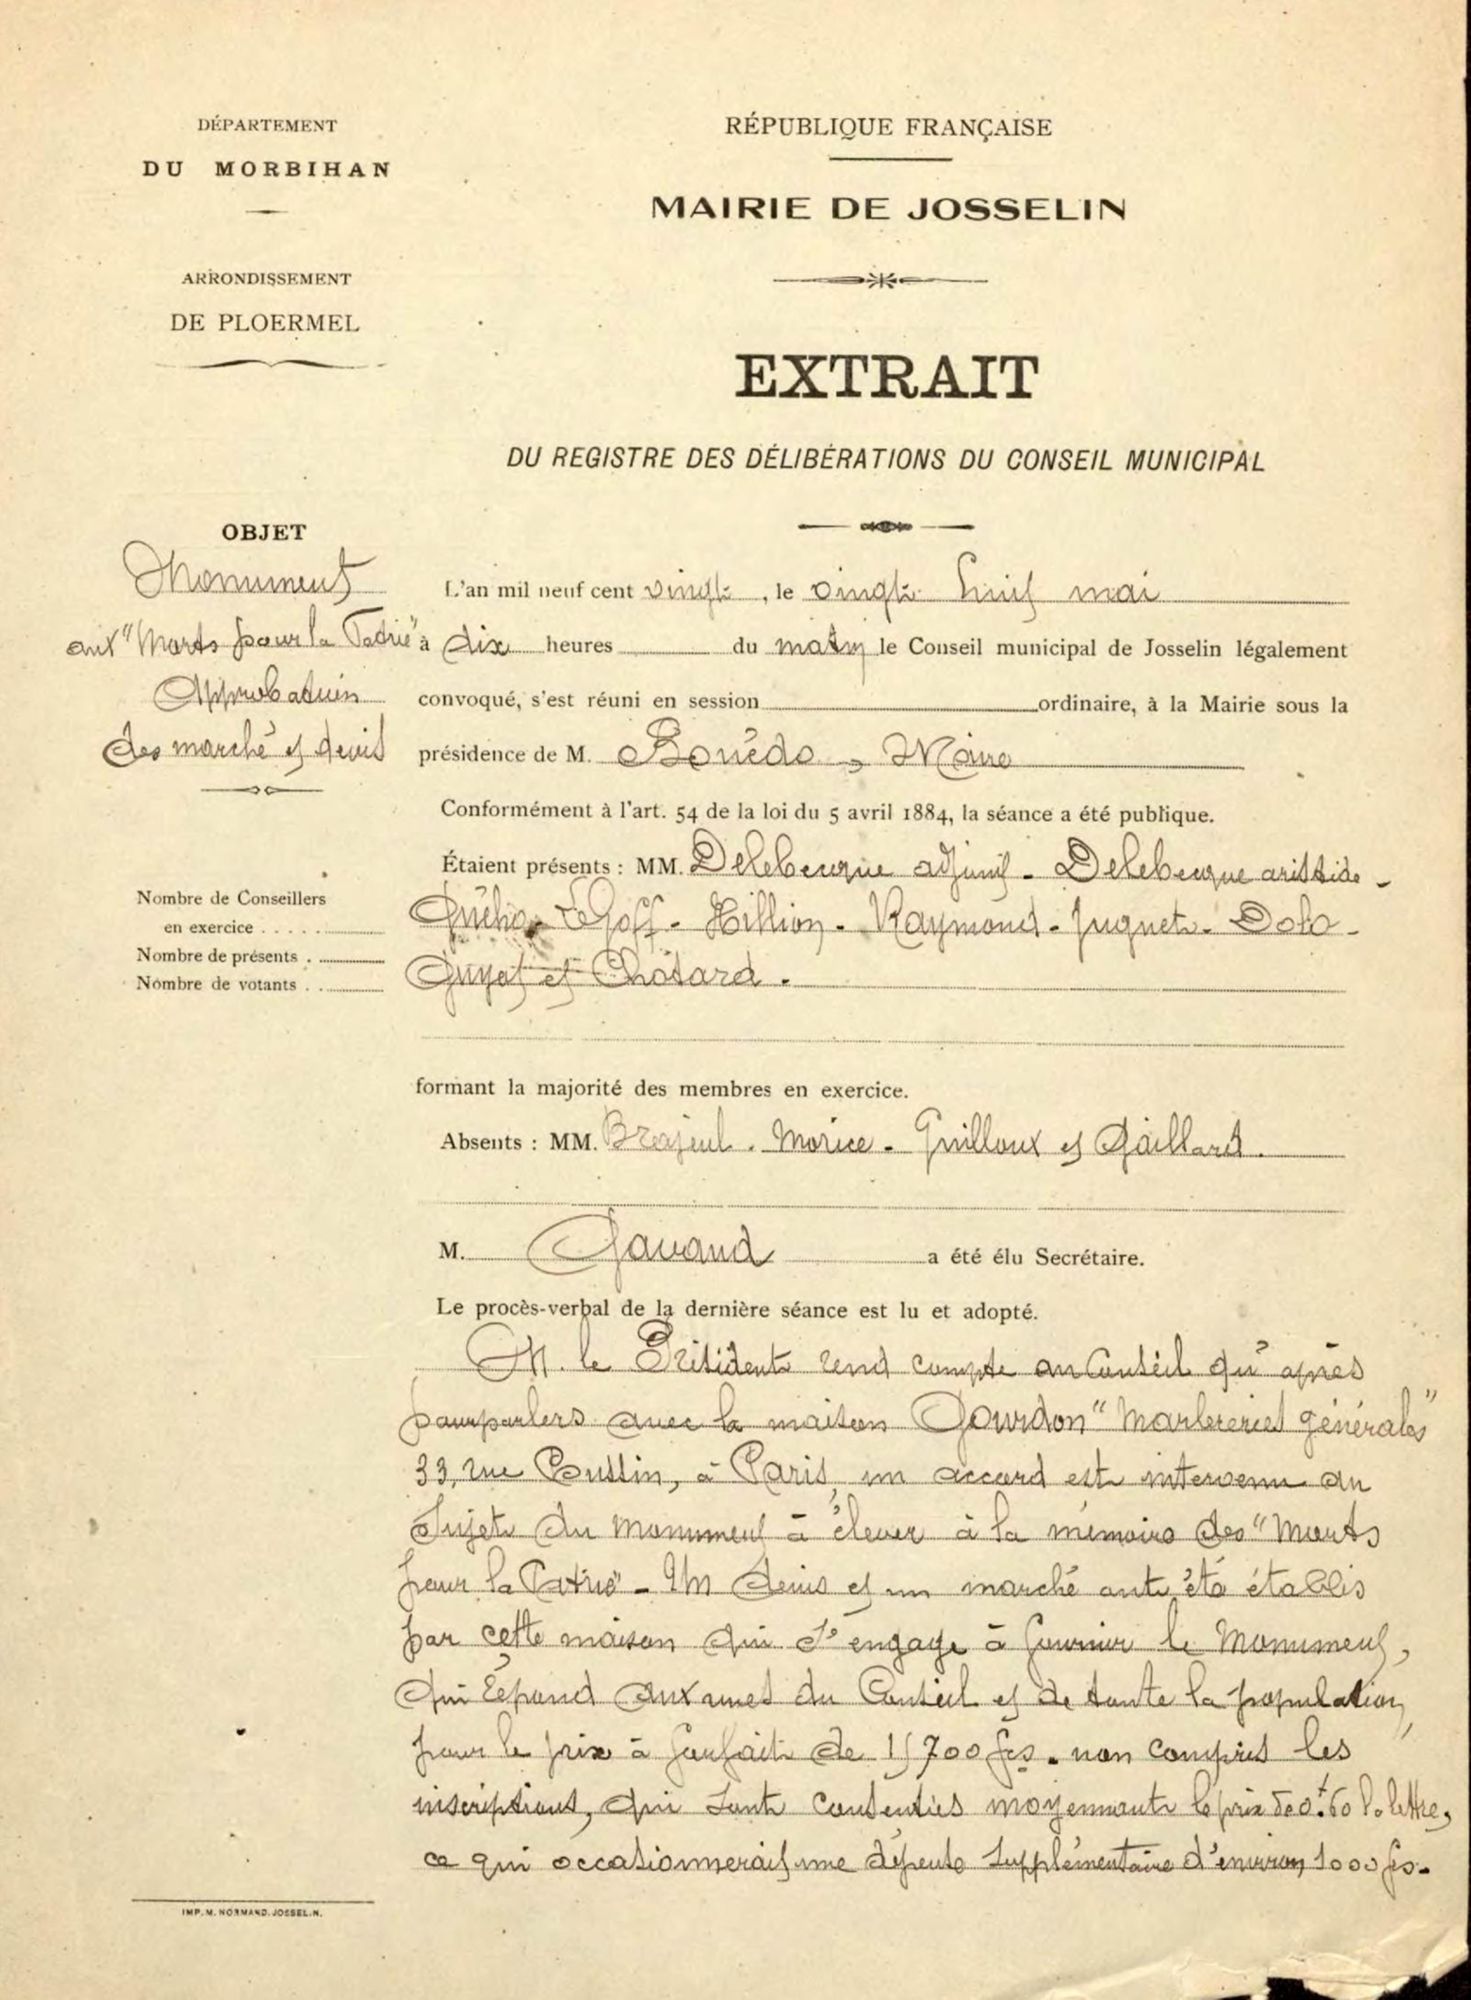 DÉPARTEMENT
DU MORBIHAN
ARRONDISSEMENT
DE PLOERMEL
RÉPUBLIQUE FRANÇAISE
MAIRIE DE JOSSELIN
EXTRAIT
DU REGISTRE DES DÉLIBÉRATIONS DU CONSEIL MUNICIPAL
OBJET
Monument
aux "Morts pour la Patrie"
Approbation
des marché et devis
Nombre de Conseillers
en exercice
Nombre de présents
Nombre de votants
L'an mil neuf cent vingt, le vingt huit mai
à dix heures du matin le Conseil municipal de Josselin légalement
convoqué, s'est réuni en session ordinaire, à la Mairie sous la
présidence de M. Bonédo, Maire
Conformément à l'art. 54 de la loi du 5 avril 1884, la séance a été publique.
Étaient présents : MM. Delebecque adjoint - Delebecque aristide -
Guého - Le Goff - Hillion - Raymond - Juguet - Dolo -
Guyot et Chotard.
formant la majorité des membres en exercice.
Absents : MM. Brajeul. Morice - Guilloux et Gaillard.
M. Gavaud a été élu Secrétaire.
Le procès-verbal de la dernière séance est lu et adopté.
M. le Président rend compte au Conseil qu'après
pourparlers avec la maison Gourdon "Marbreries générales"
33, rue Poussin, à Paris, un accord est intervenu au
Sujet du monument à élever à la mémoire des "Morts
pour la Patrie" - Un devis et un marché ont été établis
par cette maison qui s'engage à fournir le Monument,
qui répond aux vues du Conseil et de toute la population,
pour le prix à forfait de 15700 frs. non compris les
inscriptions, qui sont consenties moyennant le prix de 0f.60 la lettre,
ce qui occasionnerait une dépense supplémentaire d'environ 1000 frs.
IMP. M. NORMAND. JOSSELIN.